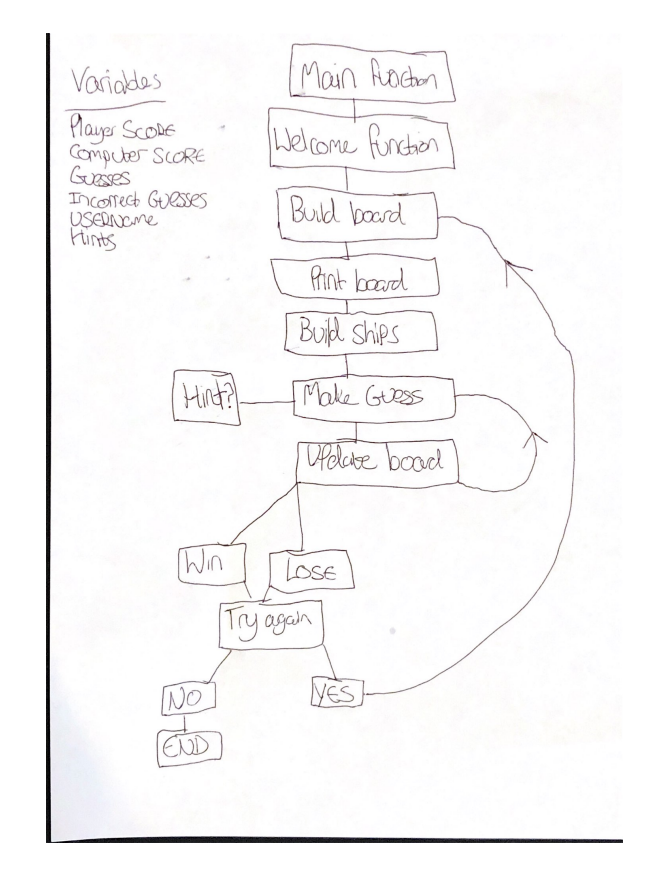 Variables
Player SCORE
Computer SCORE
Guesses
Incorrect Guesses
USERName
Hints
Main function
Welcome function
Build board
Print board
Build Ships
Hint?
Make Guess
Update board
Win
LOSE
Try again
NO
YES
END